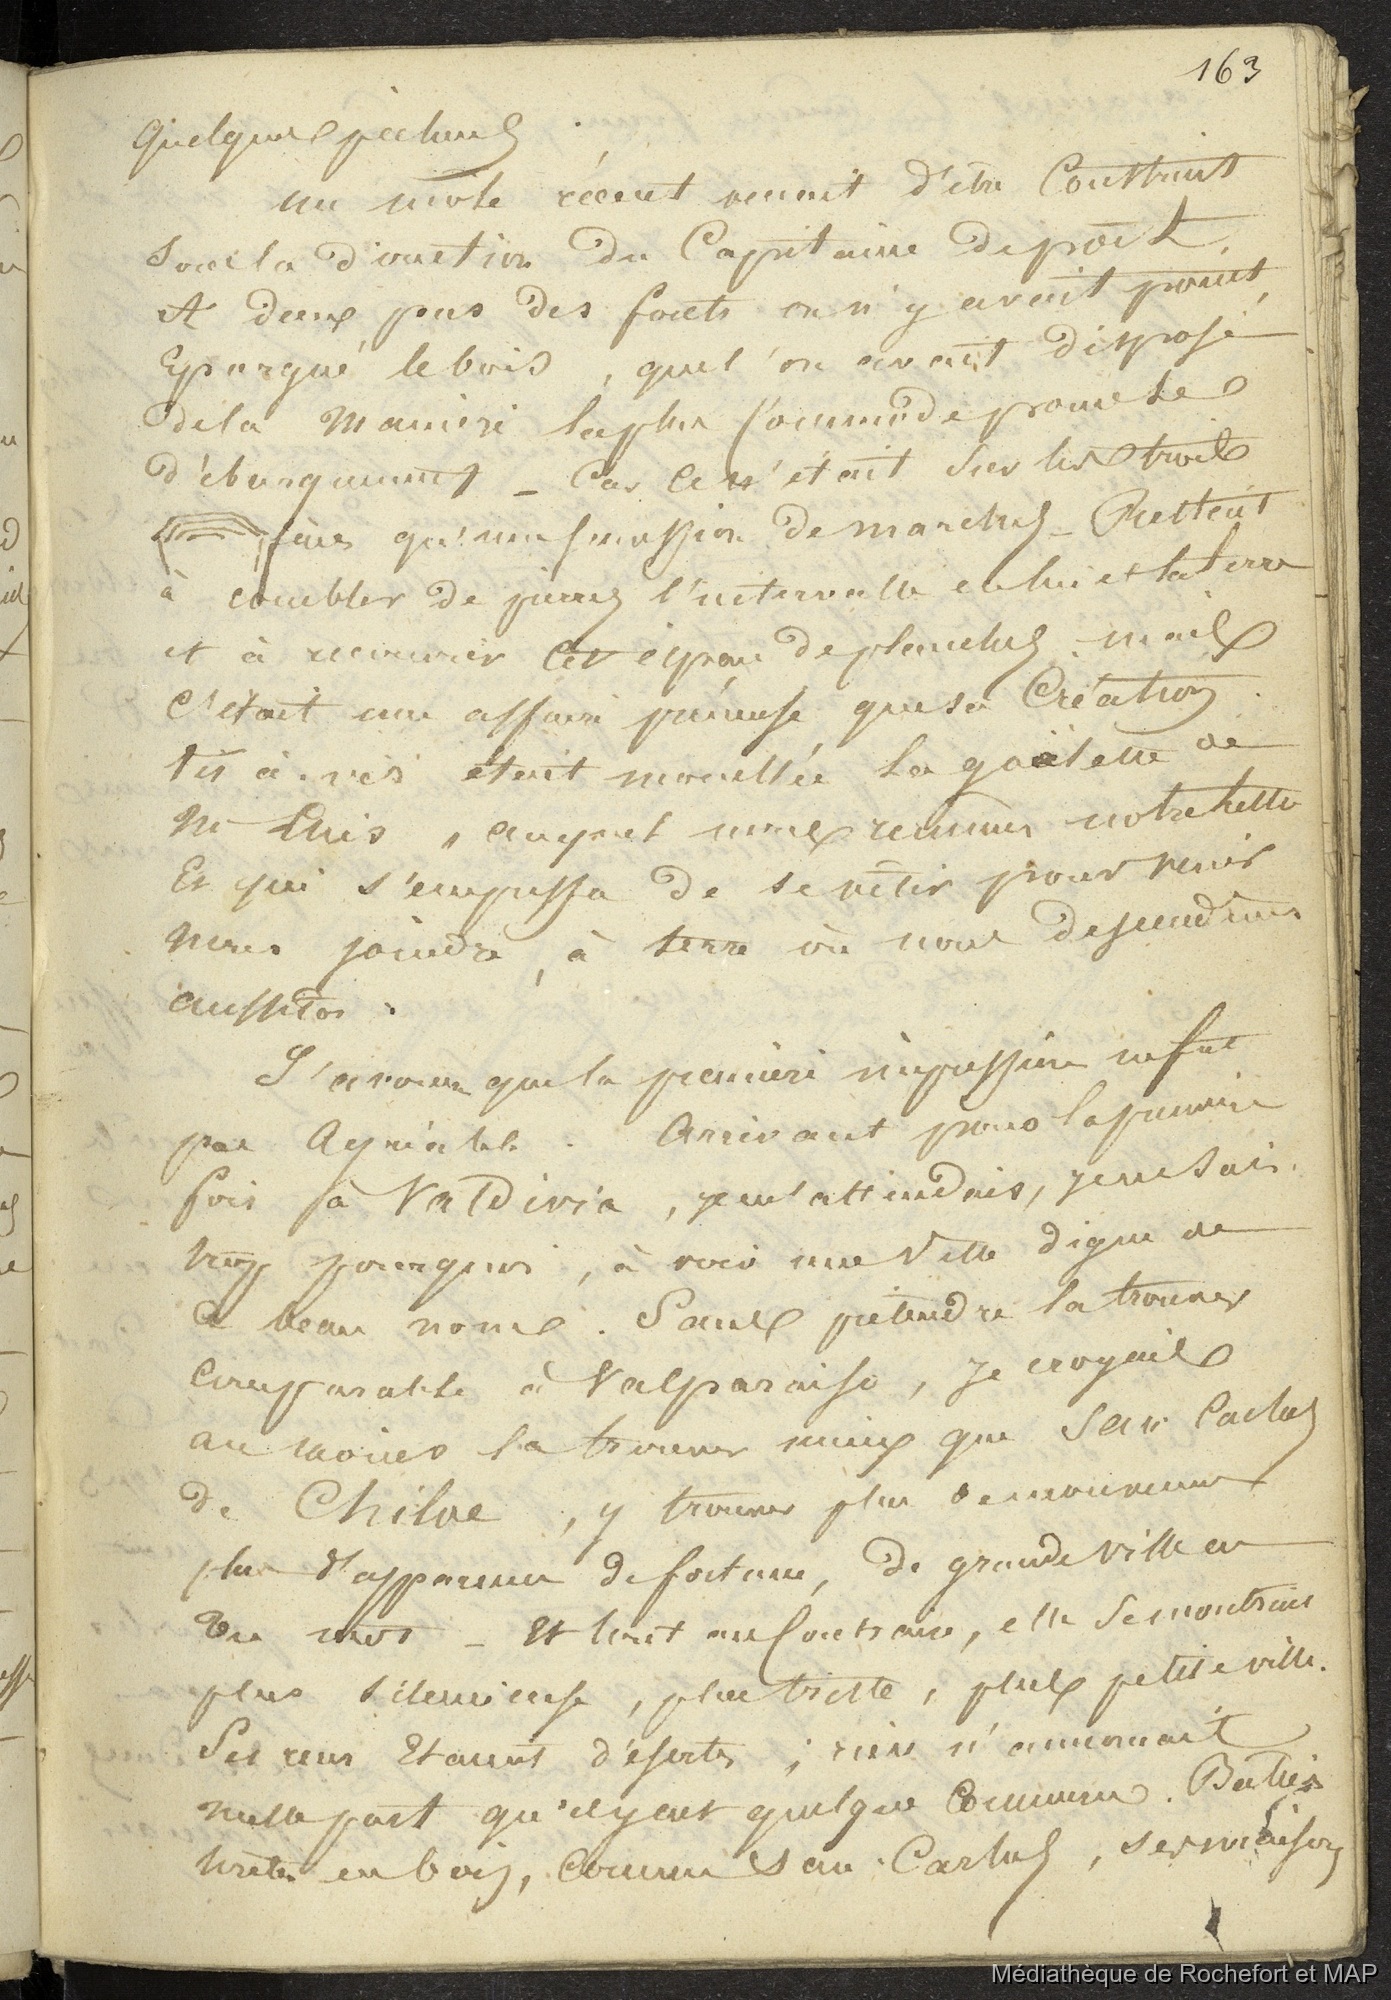 163
quelques pécheurs
un mole récent venait d'etre Construit
Sous la direction du Capitaine de port.
A deux pas des forets on n'y avait point
Epargné le bois, que l'on avait disposé
de la Maniere la plus Commode pour le
d'ebarquement _ Car Ce n'était Sur les trois
faces qu'une succession de marches _ Restait
à combler de pierres l'intervalle et la terre
et à recouvrir Cet espace de planches. mais
C'était une affaire précieuse que sa Création.
Vis à vis était mouillée La goëlette de
Mr Luis, auquel nous remimes notre lettre
Et qui s'empressa de se vétir pour venir
Nous joindre, à terre où nous descendimes
aussitôt.
J'avoue que la premiere impression ne fut
pas Agréable. Arrivant pour la premiere
fois à Valdivia, je m'attendais, je ne sais
trop pourquoi, à voir une Ville digne de
Ce beau nom. Sans prétendre la trouver
Comparable à Valparaiso, Je croyais
au moins la trouver mieux que San Carlos
de Chiloe, y trouver plus de mouvement
plus d'apparence de fortune, de grande ville en
un mot _ Et tout au Contraire, elle Se montrait
plus silencieuse, plus triste, plus petite ville.
Ses rues Etaient désertes; rien n'annoncait
nulle part qu'il y eut quelque Commerce. Baties
toutes en bois, Comme San Carlos, ses maisons
Médiathèque de Rochefort et MAP